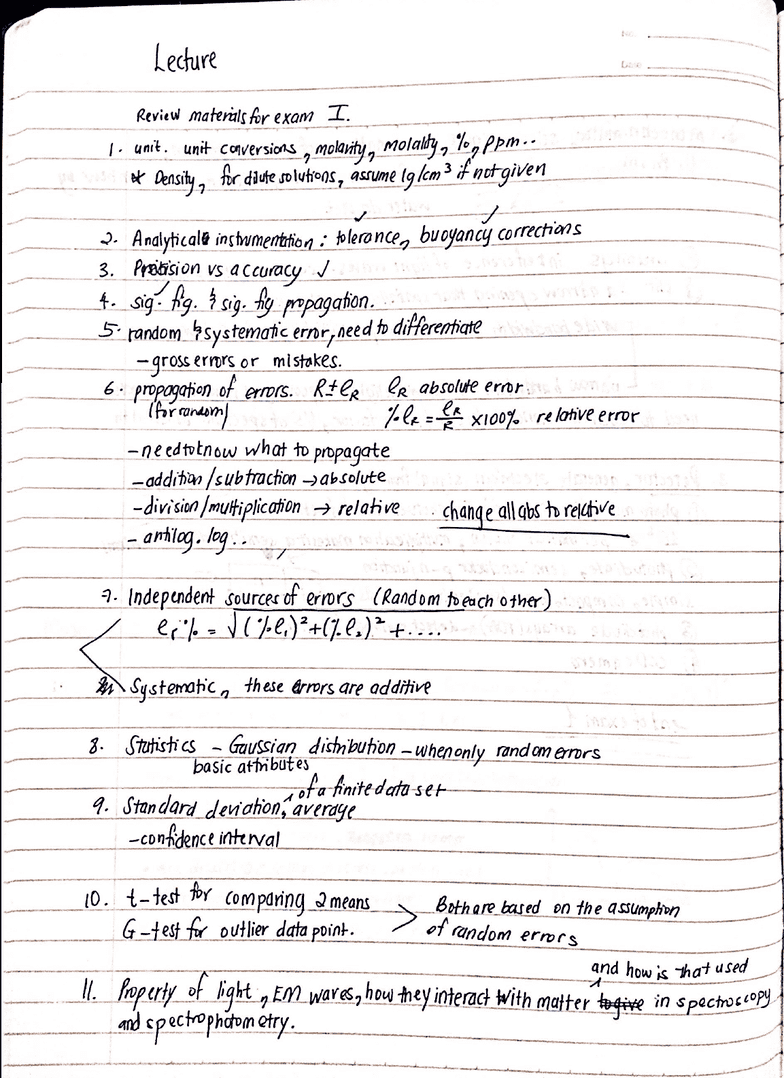 Lecture
Review materials for exam I.
1. unit. unit conversions, molarity, molality, %, ppm..
* Density, for dilute solutions, assume 1g/cm³ if not given
2. Analytical instrumentation: tolerance, buoyancy corrections
3. Precision vs accuracy ✓
4. sig. fig. & sig. fig propagation.
5. random & systematic error, need to differentiate
- gross errors or mistakes.
6. propagation of errors. R±eR eR absolute error
(for random) %eR = eR/R ×100% relative error
- need to know what to propagate
- addition/subtraction → absolute
- division/multiplication → relative change all abs to relative
- antilog, log..,
7. Independent sources of errors (Random to each other)
er% = √(%e₁)²+(%e₂)²+....
Systematic, these errors are additive
8. Statistics - Gaussian distribution - when only random errors
basic attributes
of a finite data set
9. Standard deviation, average
- confidence interval
10. t-test for comparing 2 means
G-test for outlier data point. > Both are based on the assumption
of random errors
and how is that used
11. Property of light, EM waves, how they interact with matter in spectroscopy
and spectrophotometry.